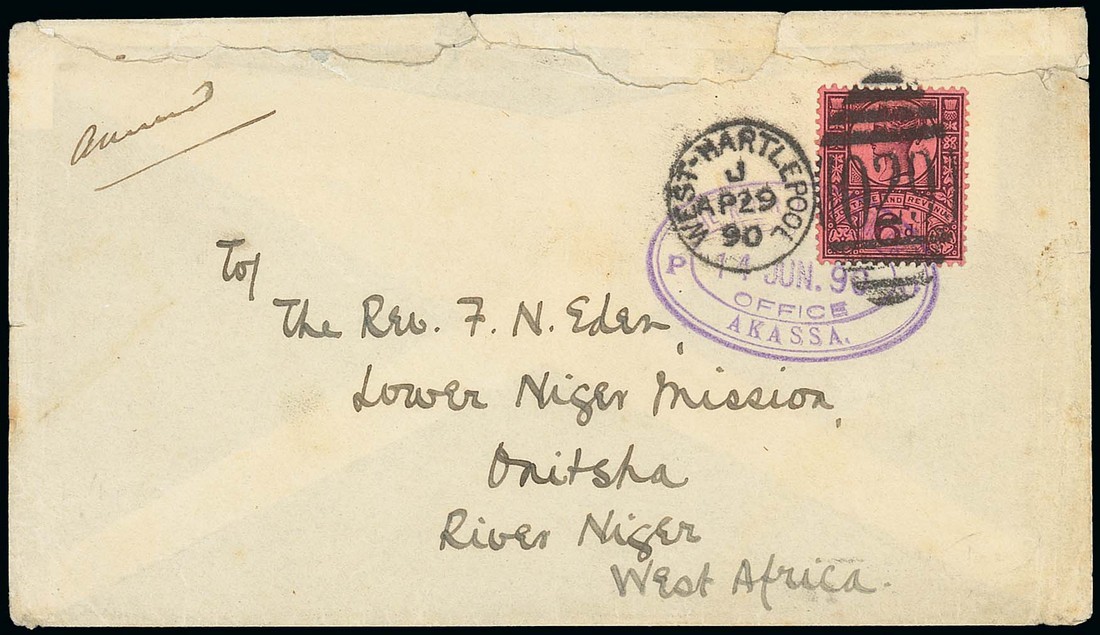 WEST-HARTLEPOOL
J
AP29
90
POSTAGE AND REVENUE
6d
P
14 JUN. 90
OFFICE
AKASSA.
To/
The Rev. F. N. Eden,
Lower Niger Mission,
Onitsha
River Niger
West Africa.